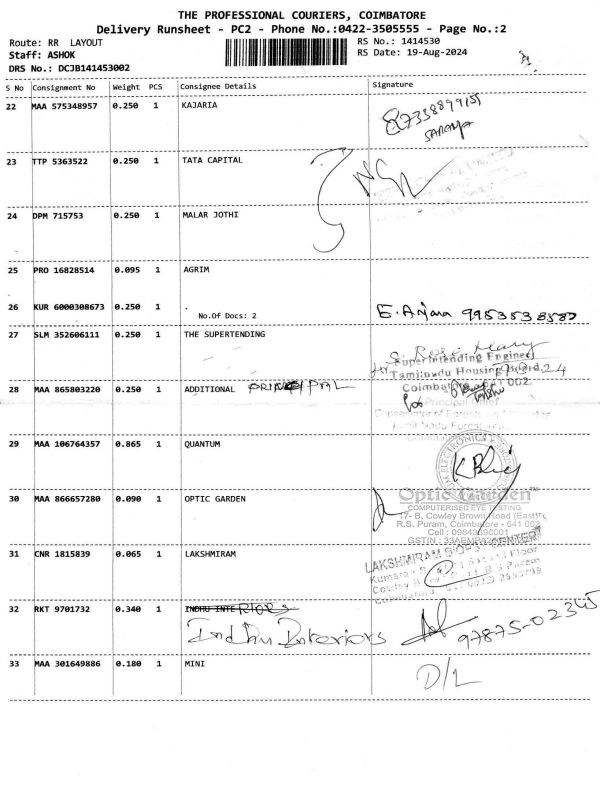 THE PROFESSIONAL COURIERS, COIMBATORE
Delivery Runsheet - PC2 - Phone No.:0422-3505555 - Page No.:2
Route: RR LAYOUT
RS No.: 1414530
Staff: ASHOK
RS Date: 19-Aug-2024
DRS No.: DCJB141453002
S No Consignment No Weight PCS Consignee Details Signature
22 MAA 575348957 0.250 1 KAJARIA
23 TTP 5363522 0.250 1 TATA CAPITAL
24 DPM 715753 0.250 1 MALAR JOTHI
25 PRO 16828514 0.095 1 AGRIM
26 KUR 6000308673 0.250 1 .
No.Of Docs: 2
27 SLM 352606111 0.250 1 THE SUPERTENDING
Superintending Engineer
Tamilnadu Housing Board
28 MAA 865803220 0.250 1 ADDITIONAL PRINCIPAL
29 MAA 106764357 0.865 1 QUANTUM
30 MAA 866657280 0.090 1 OPTIC GARDEN
Optic Garden
COMPUTERISED EYE TESTING
17- B, Cowley Brown Road (East)
R.S. Puram, Coimbatore - 641 002
31 CNR 1815839 0.065 1 LAKSHMIRAM
LAKSHMIRAM
32 RKT 9701732 0.340 1 INDHU INTERIORS
Indhu Interiors 97875-02345
33 MAA 301649886 0.180 1 MINI
D/L